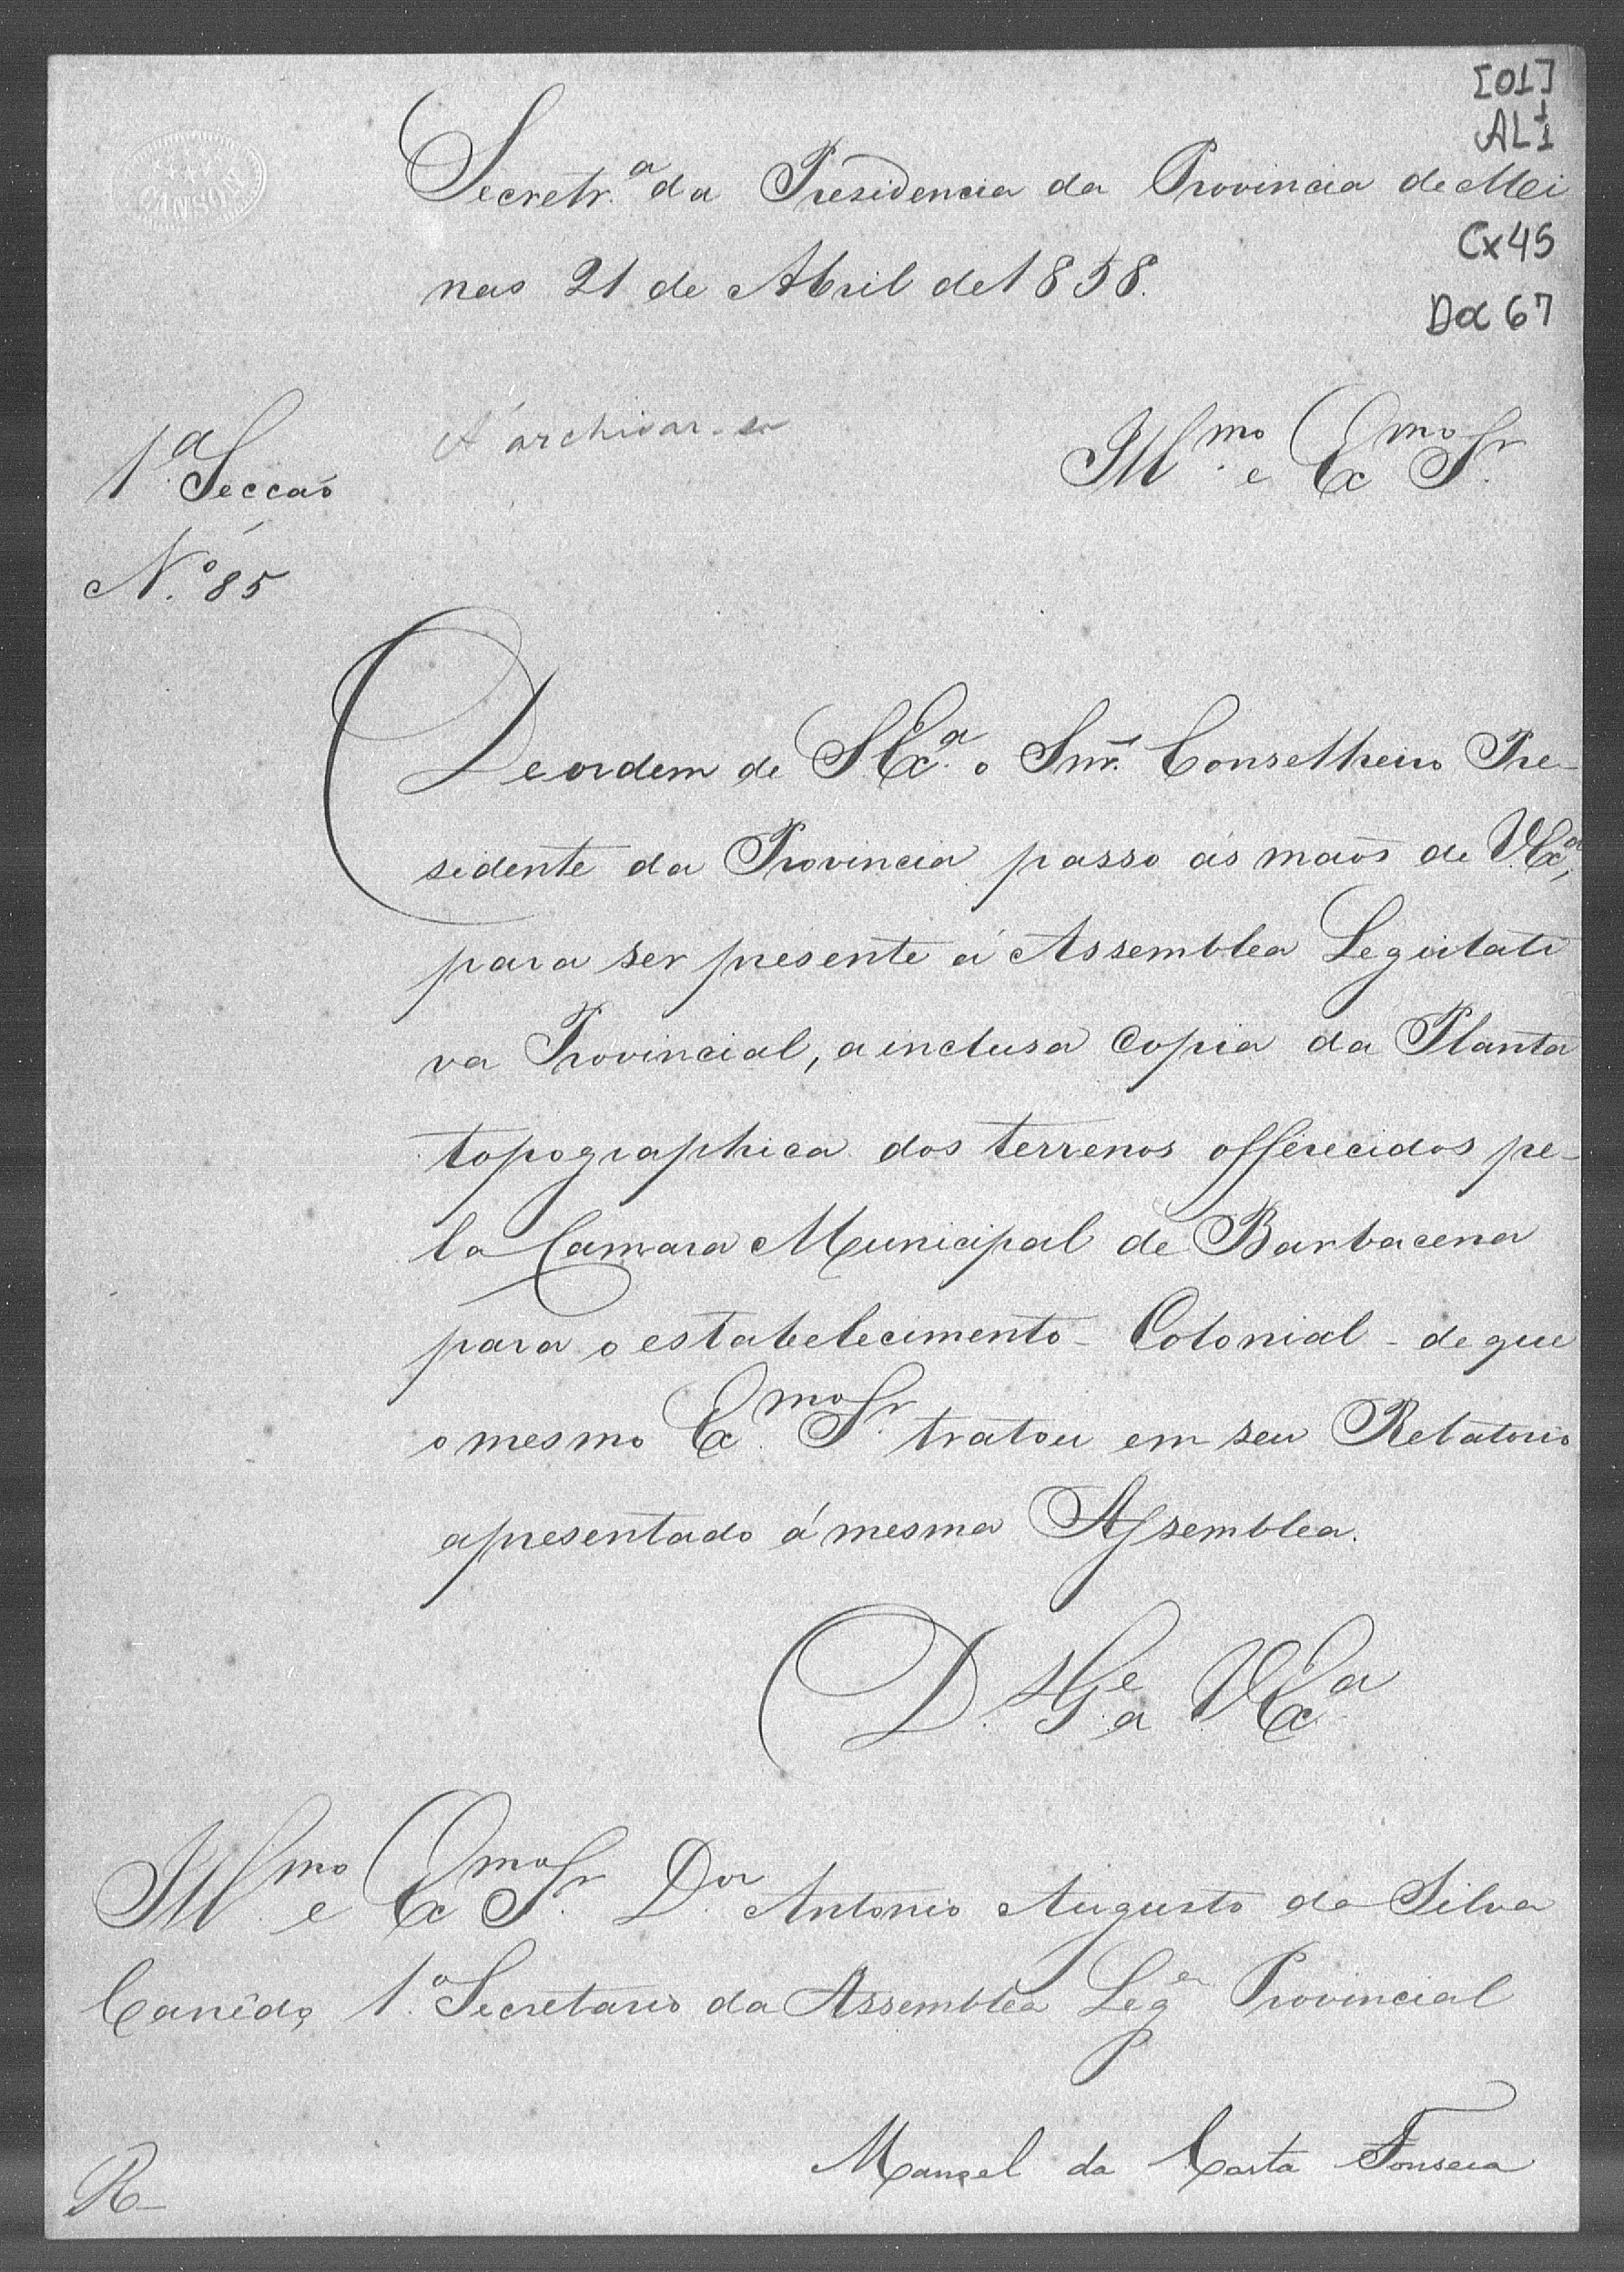 [01]
AL 1
1
Secretr.ª da Presidencia da Provincia de Mei
Cx 45
nas 21 de Abril de 1858.
Doc 67
CANSON
A archivar-se
Ill.mo e Ex.mo Sr.
1.ª Secçaõ
N.º 85
De ordem de S Ex.ª o Snr. Conselheiro Pre-
sidente da Provincia passo ás maõs de V. Ex.ª,
para ser presente á Assemblea Legislati
va Provincial, a inclusa Copia da Planta
topographica dos terrenos offerecidos pe-
la Camara Municipal de Barbacena
para o estabelecimento - Colonial - de que
o mesmo Ex.mo Sr. tratou em seu Relatorio
apresentado á mesma Assemblea.
D. G.e a V Ex.ª
Ill.mo e Ex.mo Sr. D.or Antonio Augusto da Silva
Canêdo, 1.º Secretario da Assemblea Leg.a Provincial
Manoel da Costa Fonseca
R-